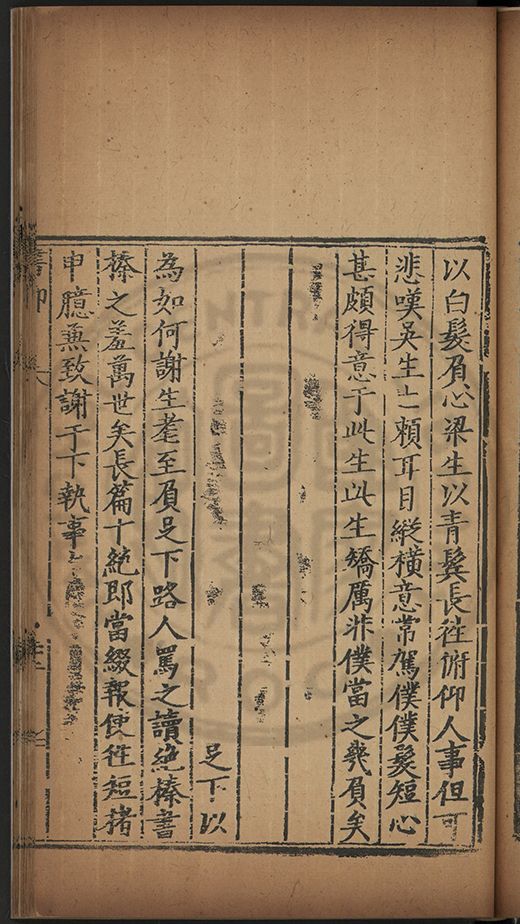 以白髮負心梁生以青鬂長徃俯仰人事但可
悲嘆吳生亡頼耳目縱横意常駕僕僕髮短心
甚頗得意于此生此生矯厲非僕當之幾負矣
足下以
為如何謝生耄至負足下路人罵之讀絶榛書
榛之羞萬世矣長篇十絶即當綴報使徃短楮
申臆兼致謝于下執事